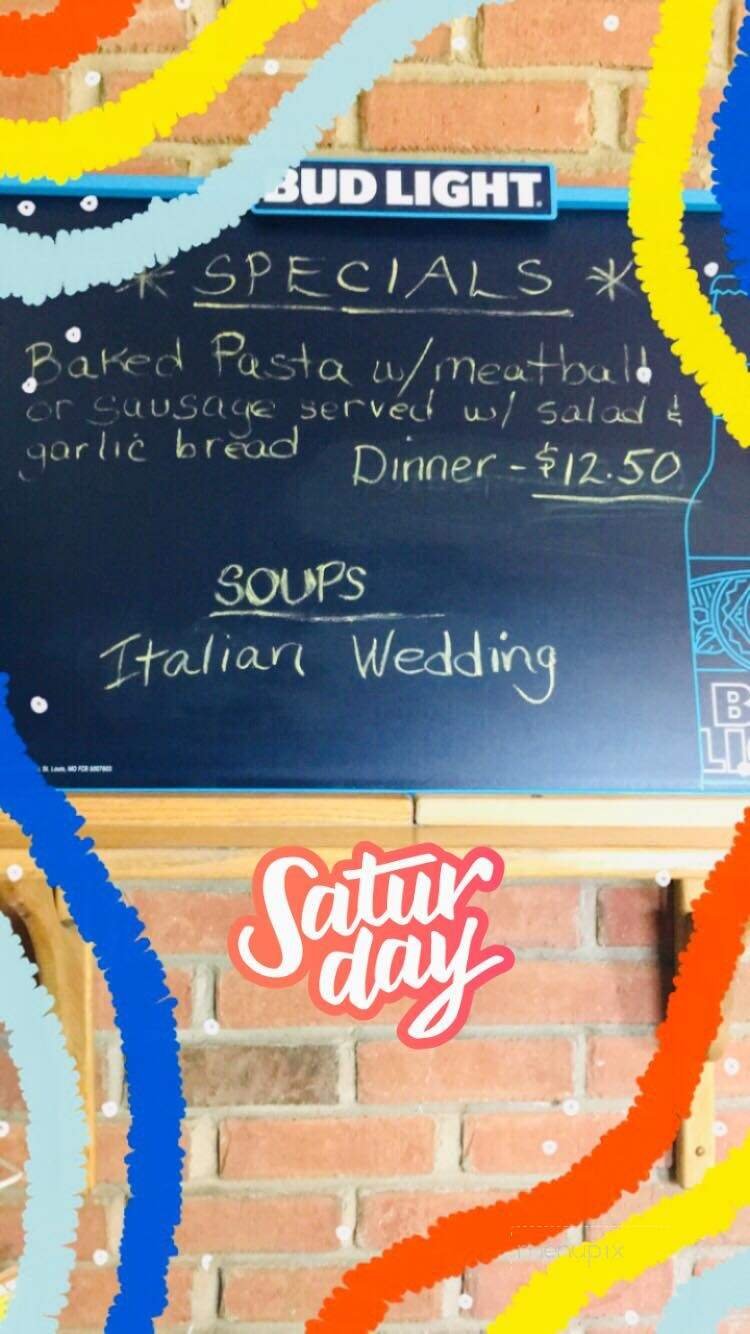 BUD LIGHT
* SPECIALS *
Baked Pasta w/meatball
or sausage served w/ salad &
garlic bread Dinner - $12.50
SOUPS
Italian Wedding
St. Louis, MO
Satur
day
menupix